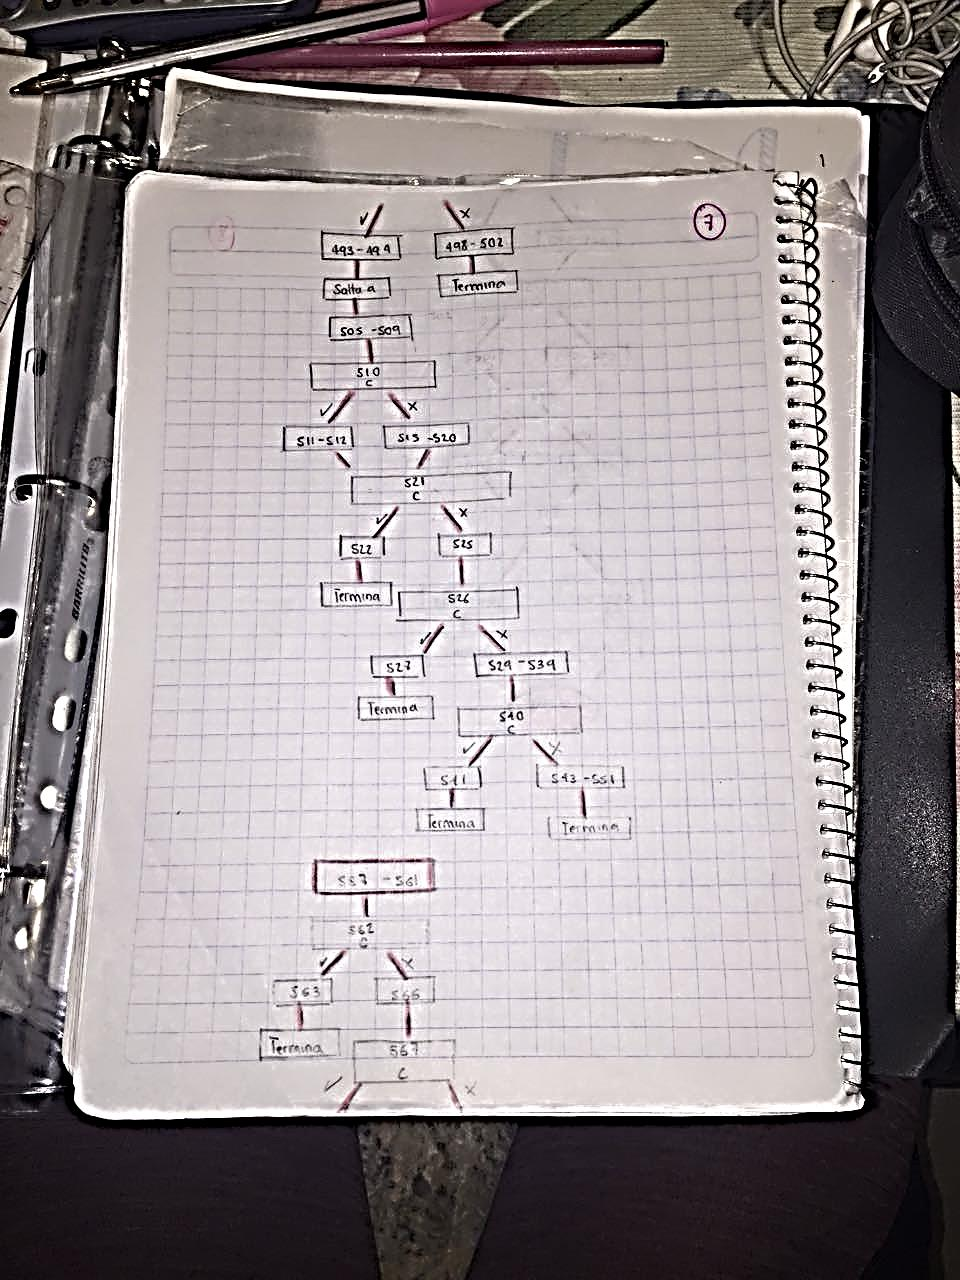 1
7
✓ x
493-494 498-502
Salta a Termina
505-509
510
C
✓ x
511-512 515-520
521
C
✓ x
522 525
Termina 526
C
✓ x
527 529-539
Termina 540
C
✓ x
541 543-551
Termina Termina
557-561
562
C
✓ x
563 566
Termina 567
C
✓ x
BARRILITO